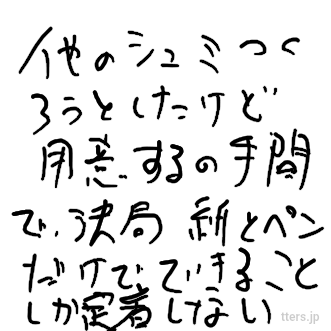 他のシュミつく
ろうとしたけど
用意するの手間
で、決局 紙とペン
だけでできること
しか定着しない
tters.jp